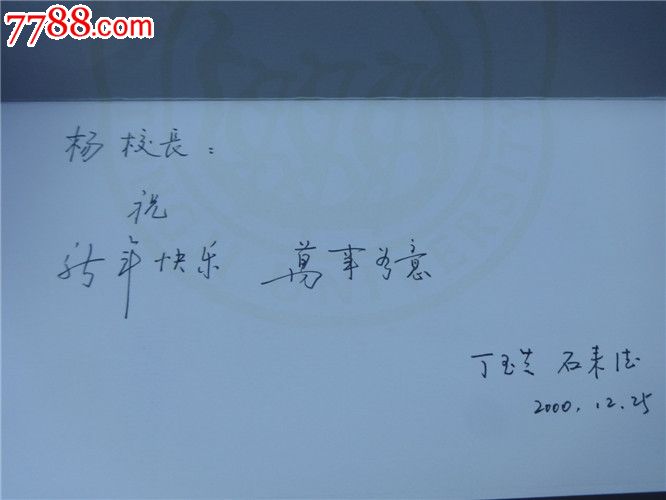 7788.com
杨校長：
祝
新年快乐 萬事如意
丁玉兰 石来德
2000.12.25